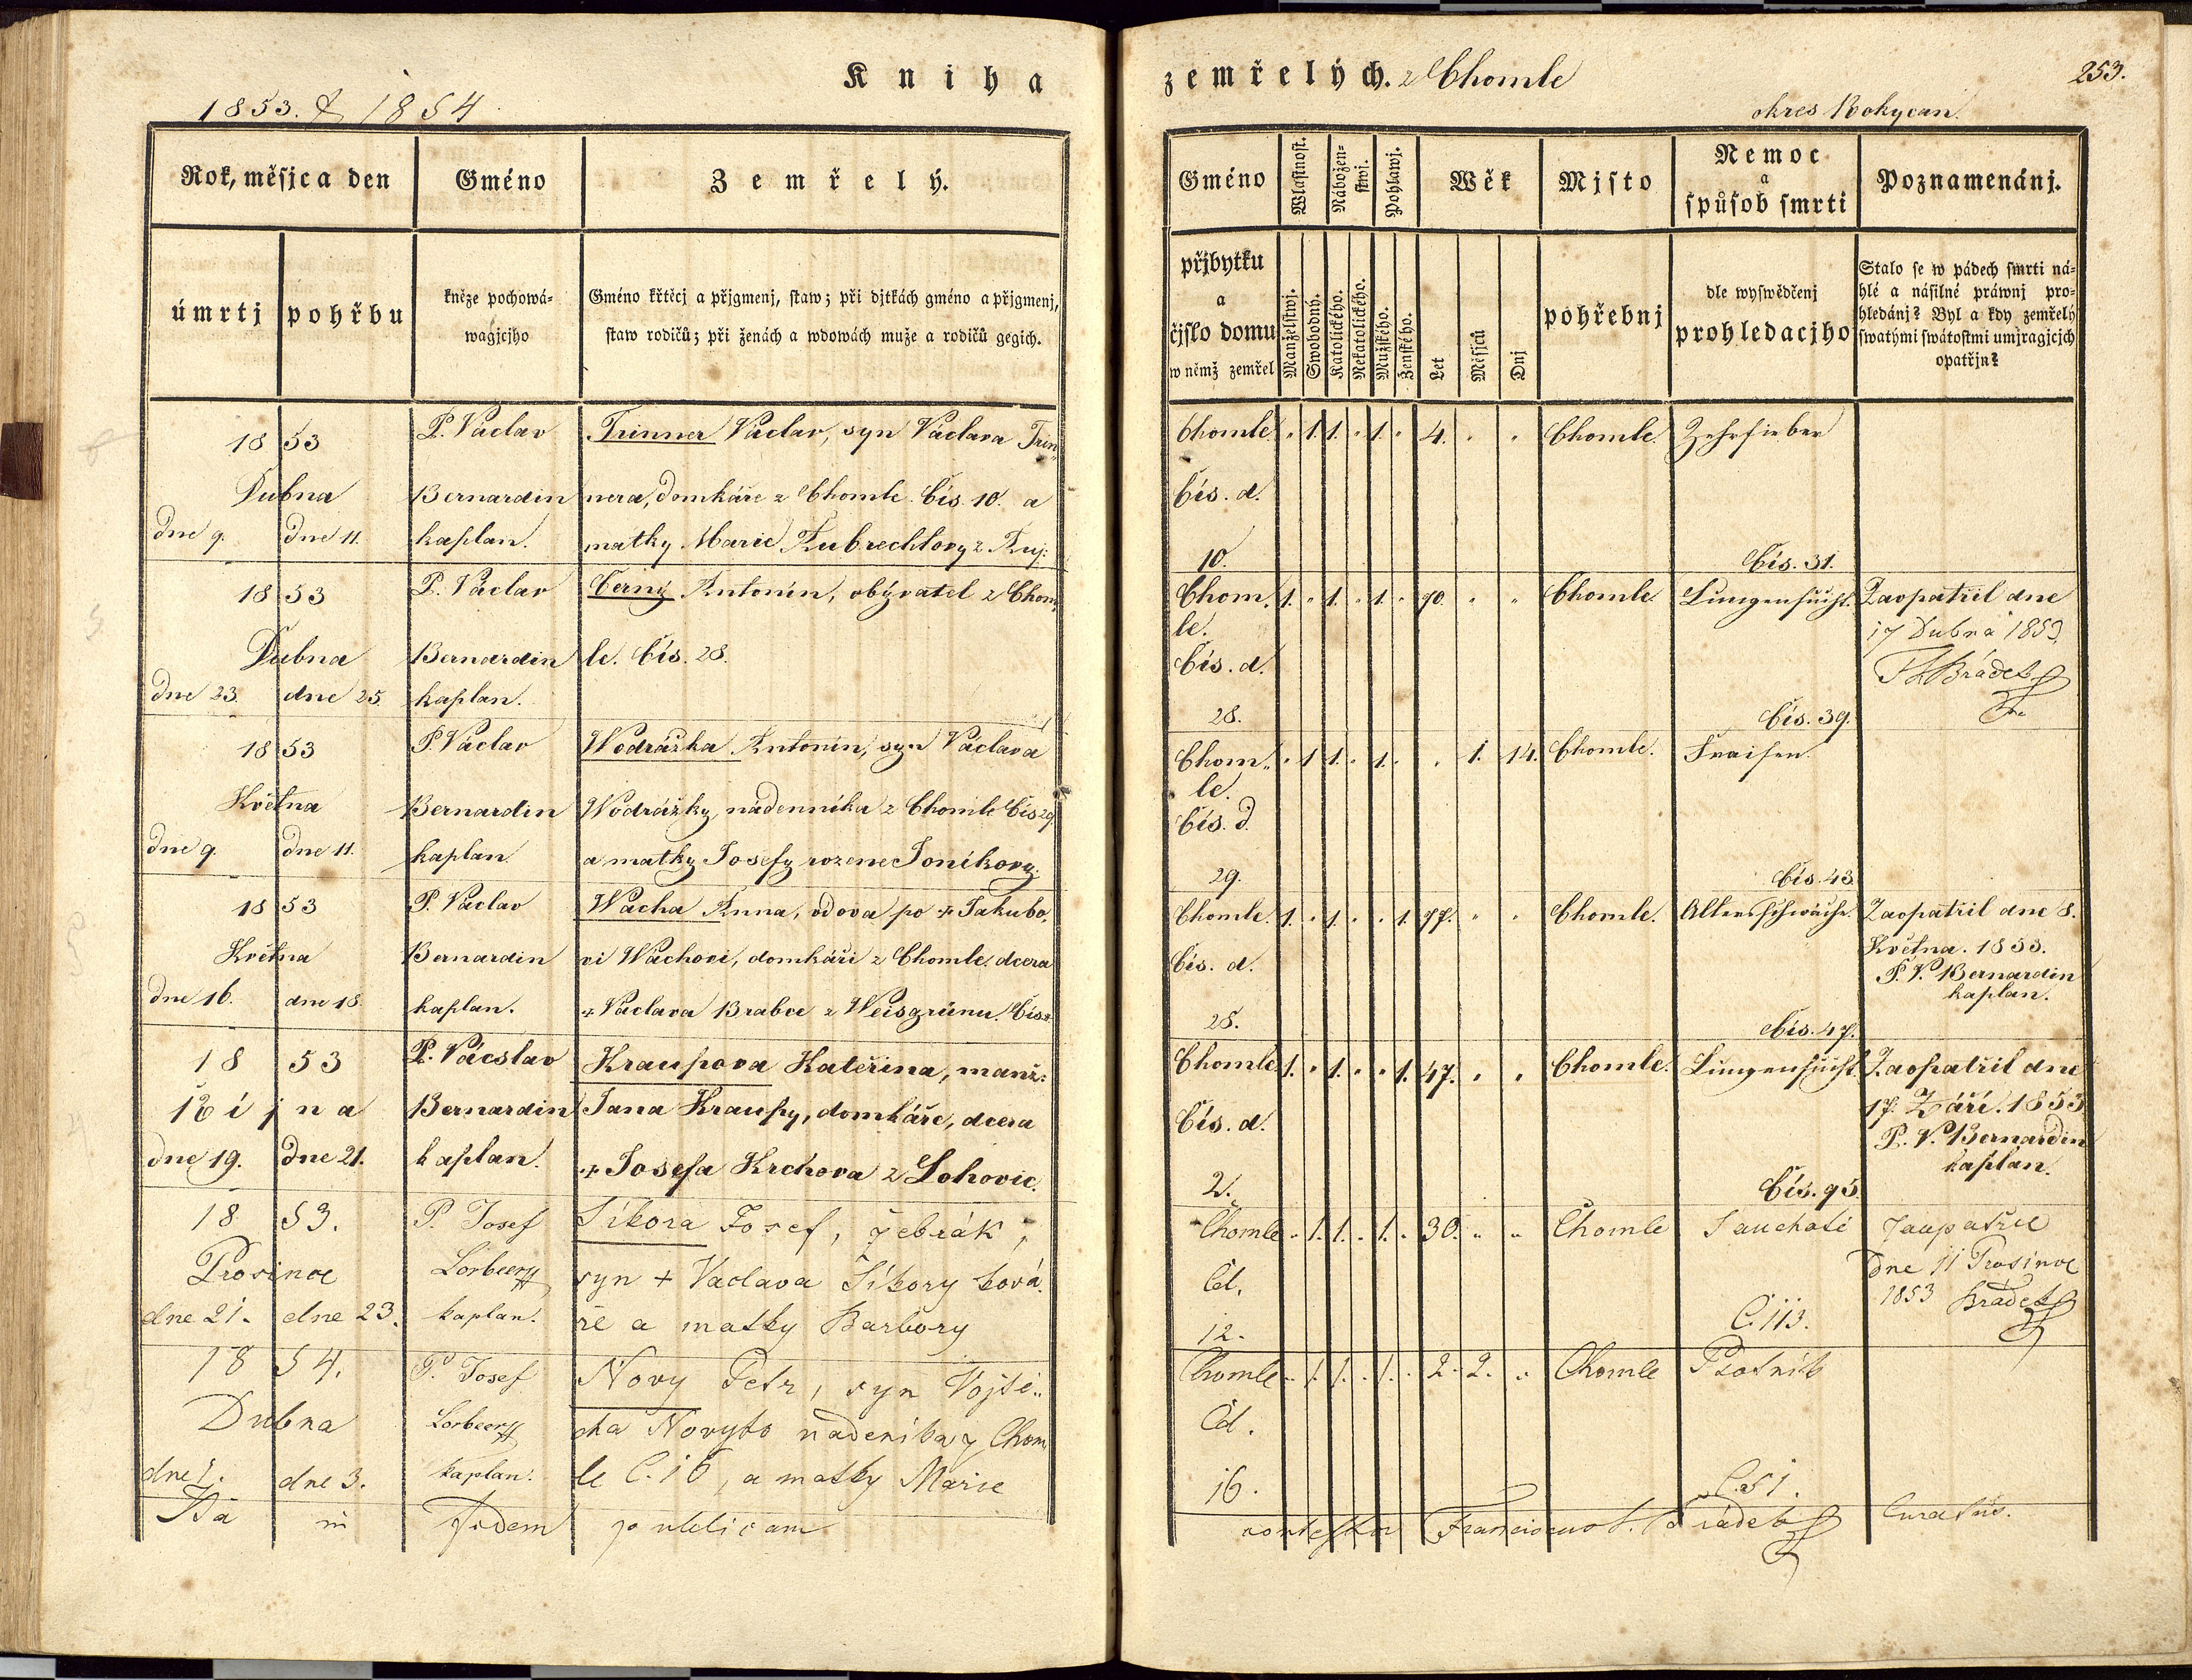 Kniha
1853. & 1854
Rok, měsjc a den
Gméno
Zemřelý.
úmrtj
pohřbu
kněze pochowá-
wagjcjho
Gméno křtěcj a přjgmenj, staw; při djtkách gméno a přjgmenj,
staw rodičů; při ženách a wdowách muže a rodičů gegich.
1853
P. Václav
Trinner Václav, syn Václava Trin-
Dubna
Bernardin
nera, domkáře z Chomle Čís. 10. a
dne 9.
dne 11.
kaplan.
matky Marie Kubrechtovy z
1853
P. Václav
Černý Antonín, obývatel z Chom
Dubna
Bernardin
le. Čís. 28.
dne 23.
dne 25.
kaplan.
1853
P. Václav
Wodrážka Antonín, syn Václava
Května
Bernardin
Wodrážky, nádenníka z Chomle Čís 29
dne 9.
dne 11.
kaplan
a matky Josefy rozene Toníkovy.
1853
P. Václav
Wácha Anna, vdova po + Jakubo,
Května
Bernardin
vi Wáchovi, domkáři z Chomle. dcera
dne 16.
dne 18.
kaplan.
+ Václava Brabce z Weisgrünu. Čís
1853
P. Vácslav
Kraupova Kateřina, manž:
Října
Bernardin
Jana Kraupy, domkáře, dcera
dne 19.
dne 21.
kaplan.
+ Josefa Krchova z Lohovic.
1853.
P. Josef
Síkora Josef, žebrák,
Prosince
Lorbeer
syn + Vaclava Šíkory ková
dne 21.
dne 23.
kaplan.
ře a matky Barbory
1854.
P. Josef
Nový Petr, syn Vojtě-
Dubna
Lorbeer
cha Novyho nadeníka z Chom
dne 1.
dne 3.
kaplan.
le C. 16, a matky Marie
Ita
in
fidem
publicam
zemřelých. z Chomle
253.
okres Rokycan.
Gméno
Wlastnost.
Nábožen-
stwj.
Pohlawj.
Wěk
Mjsto
Nemoc
a
spůsob smrti
Poznamenánj.
přjbytku
a
čjslo domu
w němž zemřel
Manželstwj.
Swobodný.
Katolického.
Nekatolického.
Mužského.
Ženského.
Let
Měsjců
Dnj
pohřebnj
dle wyswědčenj
prohledacjho
Stalo se w pádech smrti ná-
hlé a násilné práwnj pro-
hledánj? Byl a kdy zemřelý
swatými swátostmi umjragjcjch
opatřjn?
Chomle. " 1. 1. " 1. " 4. " " Chomle. Zehrfieber
Čís. d.
10.
Čís. 31.
Chom. 1. " 1. " 1. " 70. " " Chomle. Lungensucht. Zaopatřil dne
le.
17 Dubna 1853.
Čís. d.
Brádek
28.
Čís. 39.
Chom- " 1 1. " 1. " " 1. 14. Chomle. Fraisen.
le.
Čís. d.
29.
Čís. 43.
Chomle. 1. " 1. " " 1. 77. " " Chomle. Altersschwäche. Zaopatřil dne 8.
Května. 1853.
Čís. d.
P. V. Bernardin
kaplan.
25.
Čís. 47.
Chomle 1. " 1. " " 1. 47. " " Chomle. Lungensucht. Zaopatřil dne
17. Září. 1853
Čís. d.
P. V. Bernardin
kaplan.
2.
Čís. 95.
Chomle " 1. 1. " 1. " 30. " " Chomle Sauchotě Zaopatřil
dne 11 Prosince
Čd.
1853 Brádek
12.
C. 113.
Chomle " 1. 1. " 1. " 2. 2. " Chomle Psotník
Čd.
16.
C. 51.
contestor Franciscus Brádek Curatus.